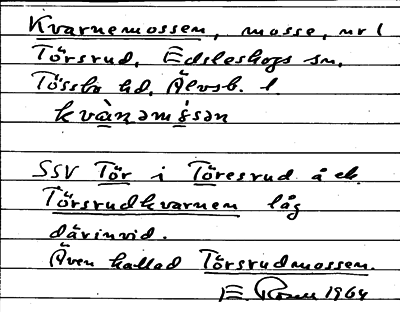 Kvarnemossen, mosse, nr 1
Törsrud, Edsleskogs sn,
Tössbo hd, Älvsb. l.
kvànəmɵ́sən
SSV Tör i Töresrud å ek.
Törsrudkvarnen låg
därinvid.
Även kallad Törsrudmossen.
E. 1964